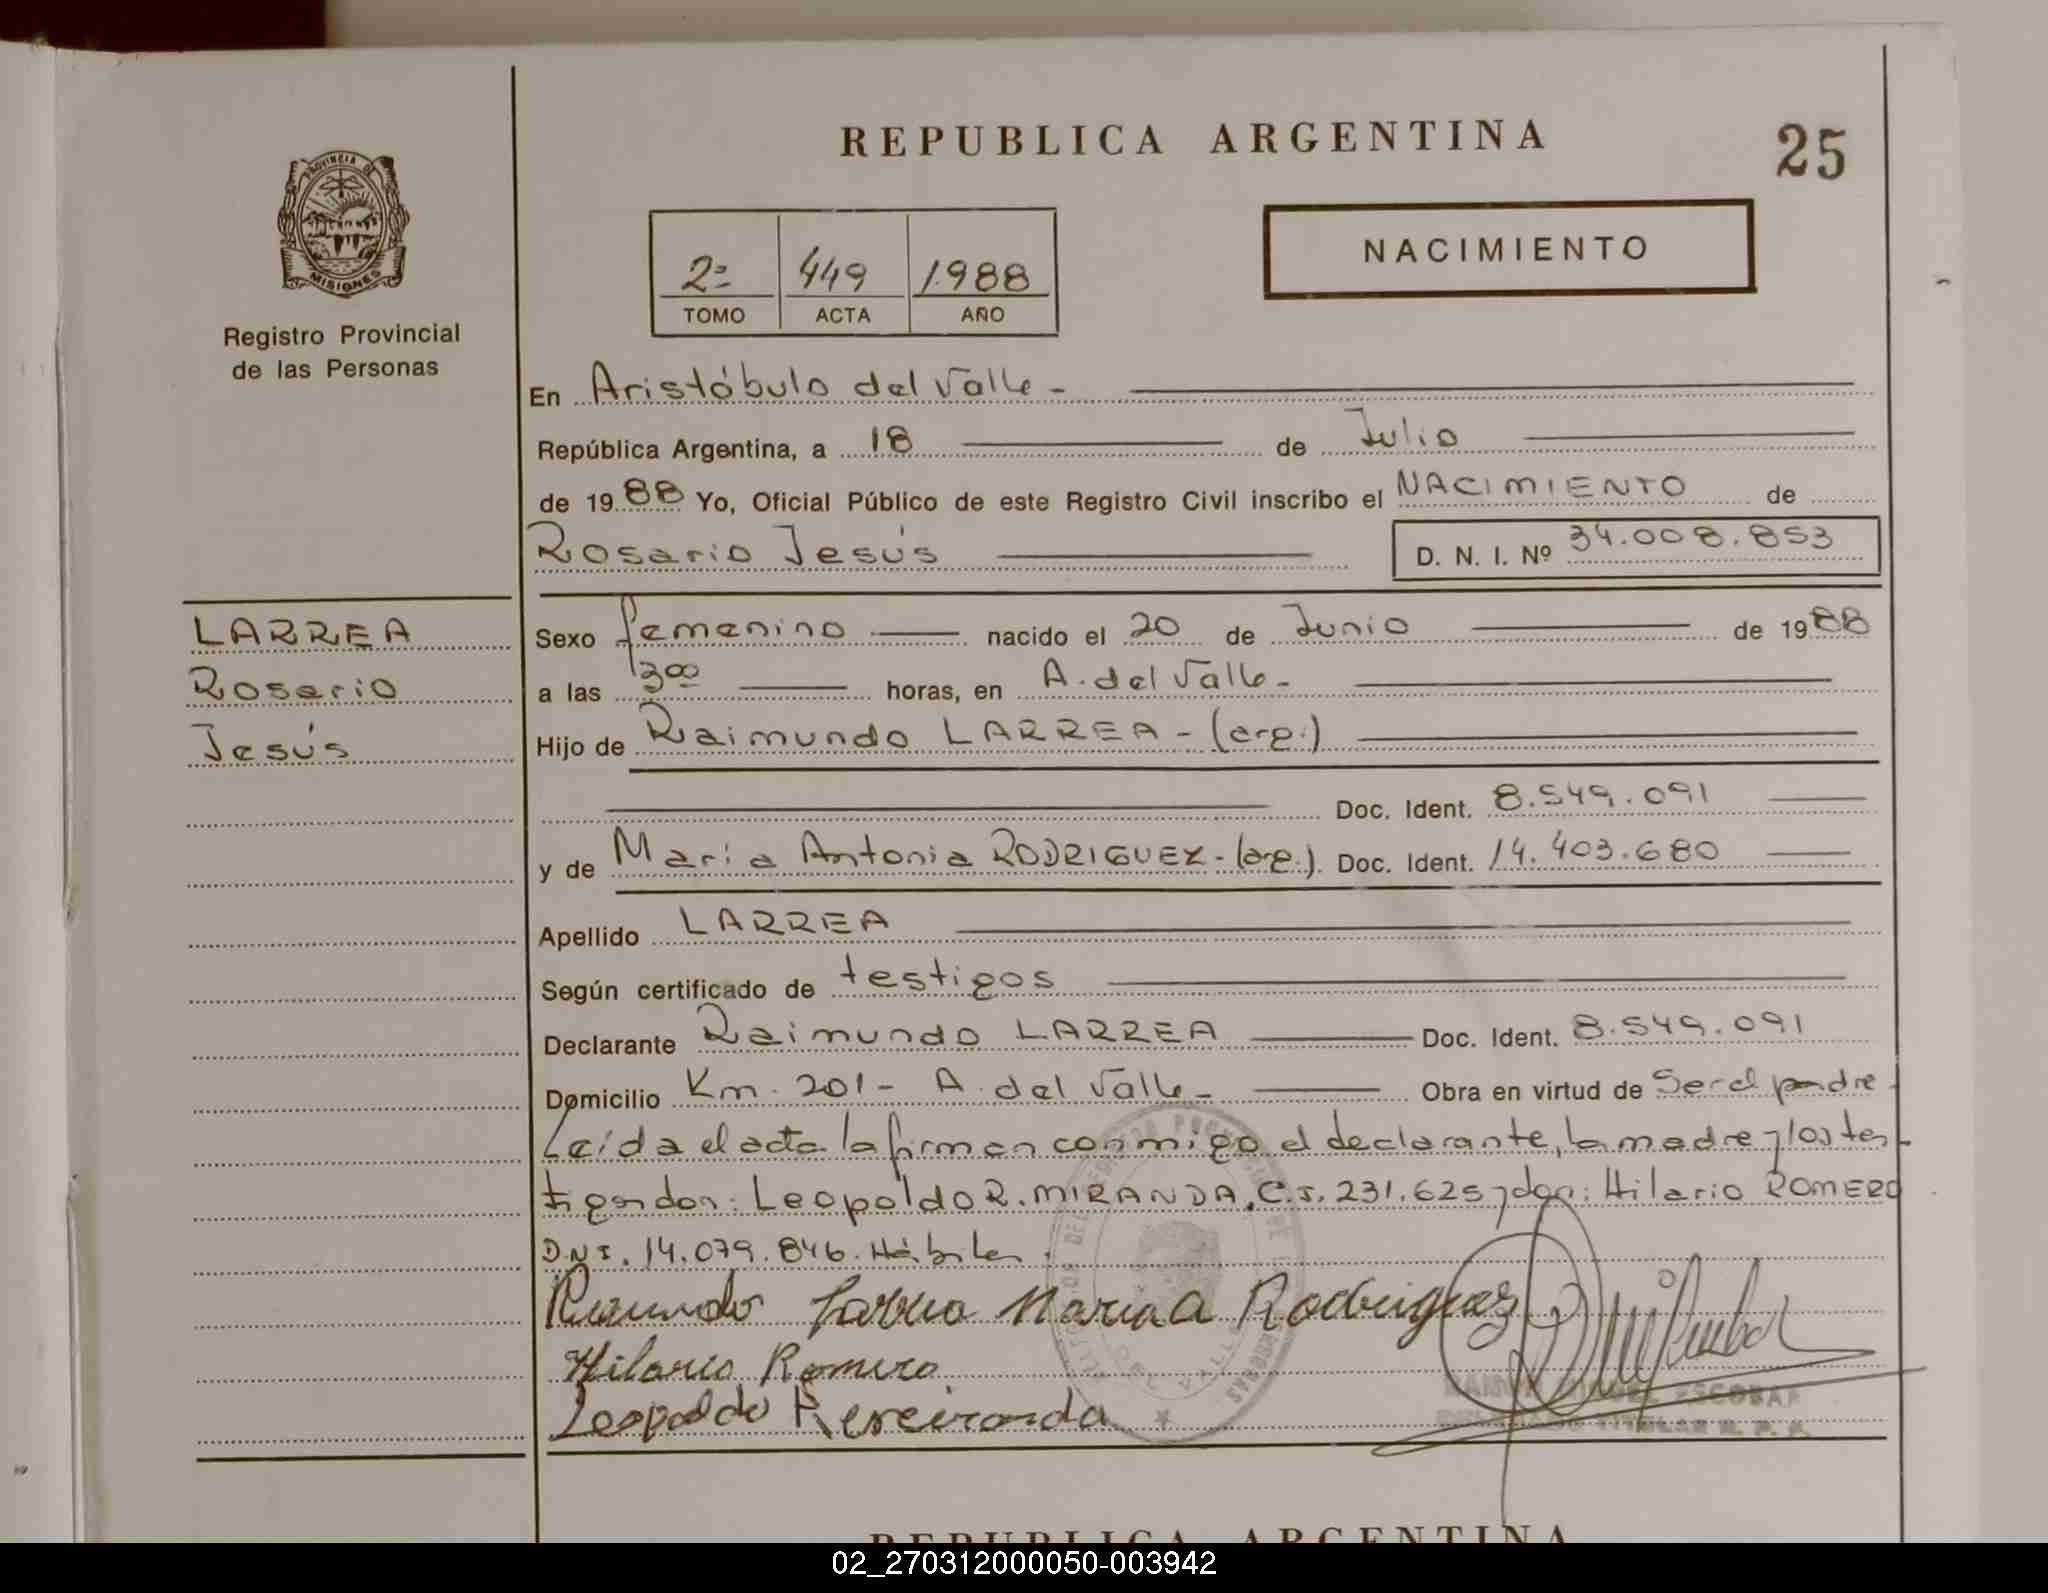 REPUBLICA ARGENTINA
25
PROVINCIA DE
MISIONES
Registro Provincial
de las Personas
2º 449 1988
TOMO ACTA AÑO
NACIMIENTO
En Aristóbulo del Valle -
República Argentina, a 18 de Julio
de 1988 Yo, Oficial Público de este Registro Civil inscribo el NACIMIENTO de
Rosario Jesús D. N. I. Nº 34.008.853
LARREA
Rosario
Jesús
Sexo femenino nacido el 20 de Junio de 1988
a las 13⁰⁰ horas, en A. del Valle -
Hijo de Raimundo LARREA - (arg.)
Doc. Ident. 8.549.091
y de María Antonia RODRIGUEZ - (arg.). Doc. Ident. 14.403.680
Apellido LARREA
Según certificado de testigos
Declarante Raimundo LARREA Doc. Ident. 8.549.091
Domicilio Km. 201 - A. del Valle - Obra en virtud de Ser el padre
Leída el acta la firman conmigo el declarante, la madre y los tes-
tigos don: Leopoldo R. MIRANDA, C.I. 231.625 y don: Hilario ROMERO
D.N.I. 14.079.846. Hábiles.
Raimundo Larrea Maria A Rodriguez
Hilario Romero
Leopoldo
ESCOBAR
TITULAR R. P. P.
DEL VALLE
REPUBLICA ARGENTINA
02_270312000050-003942